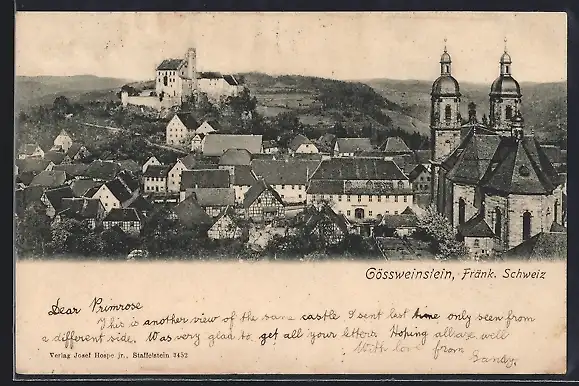 Gössweinstein, Fränk. Schweiz
Dear Primrose
This is another view of the same castle I sent last time only seen from
a different side. Was very glad to get all your letters Hoping all are well
With love from Sandy.
Verlag Josef Hospe jr., Staffelstein 3452